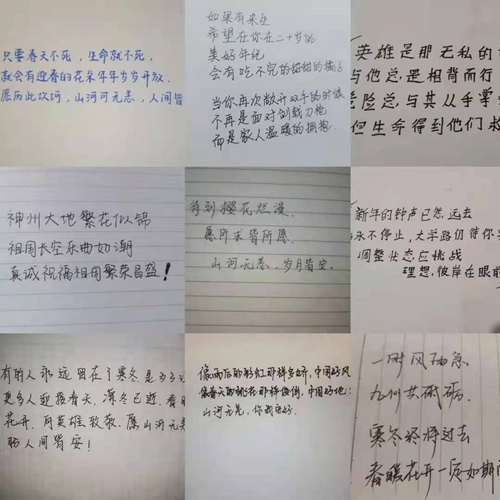 只要春天不死，生命就不死，
就会有迎春的花朵年年岁岁开放，
愿历此坎坷，山河可无恙，人间皆
如果有来生
希望在你在二十岁的
美好年纪
会有吃不完的甜甜的橘子
当你再次敞开双手的时候
不再是面对剑戟刀枪
而是家人温暖的拥抱
英雄是那无私的
与他总是相背而行
危险总，与其从手掌
但生命得到他们
神州大地繁花似锦
祖国长空乐曲如潮
真诚祝福祖国繁荣昌盛！
待到樱花烂漫，
愿所求皆所愿
山河无恙，岁月皆安。
新年的钟声已悠远去
永不停止，大学路仍待你
调整状态应挑战
理想，彼岸在眼前
有的人永远留在了寒冬是为了
更多人迎接春天，深冬已逝，春暖
花开，向英雄致敬，愿山河无恙
人间皆安！
像雨后的彩虹那样多娇，中国好风
像春天的桃花那样
山河无恙，你我安好。
一时风雨急
九州共砥砺
寒冬终将过去
春暖花开一定如期